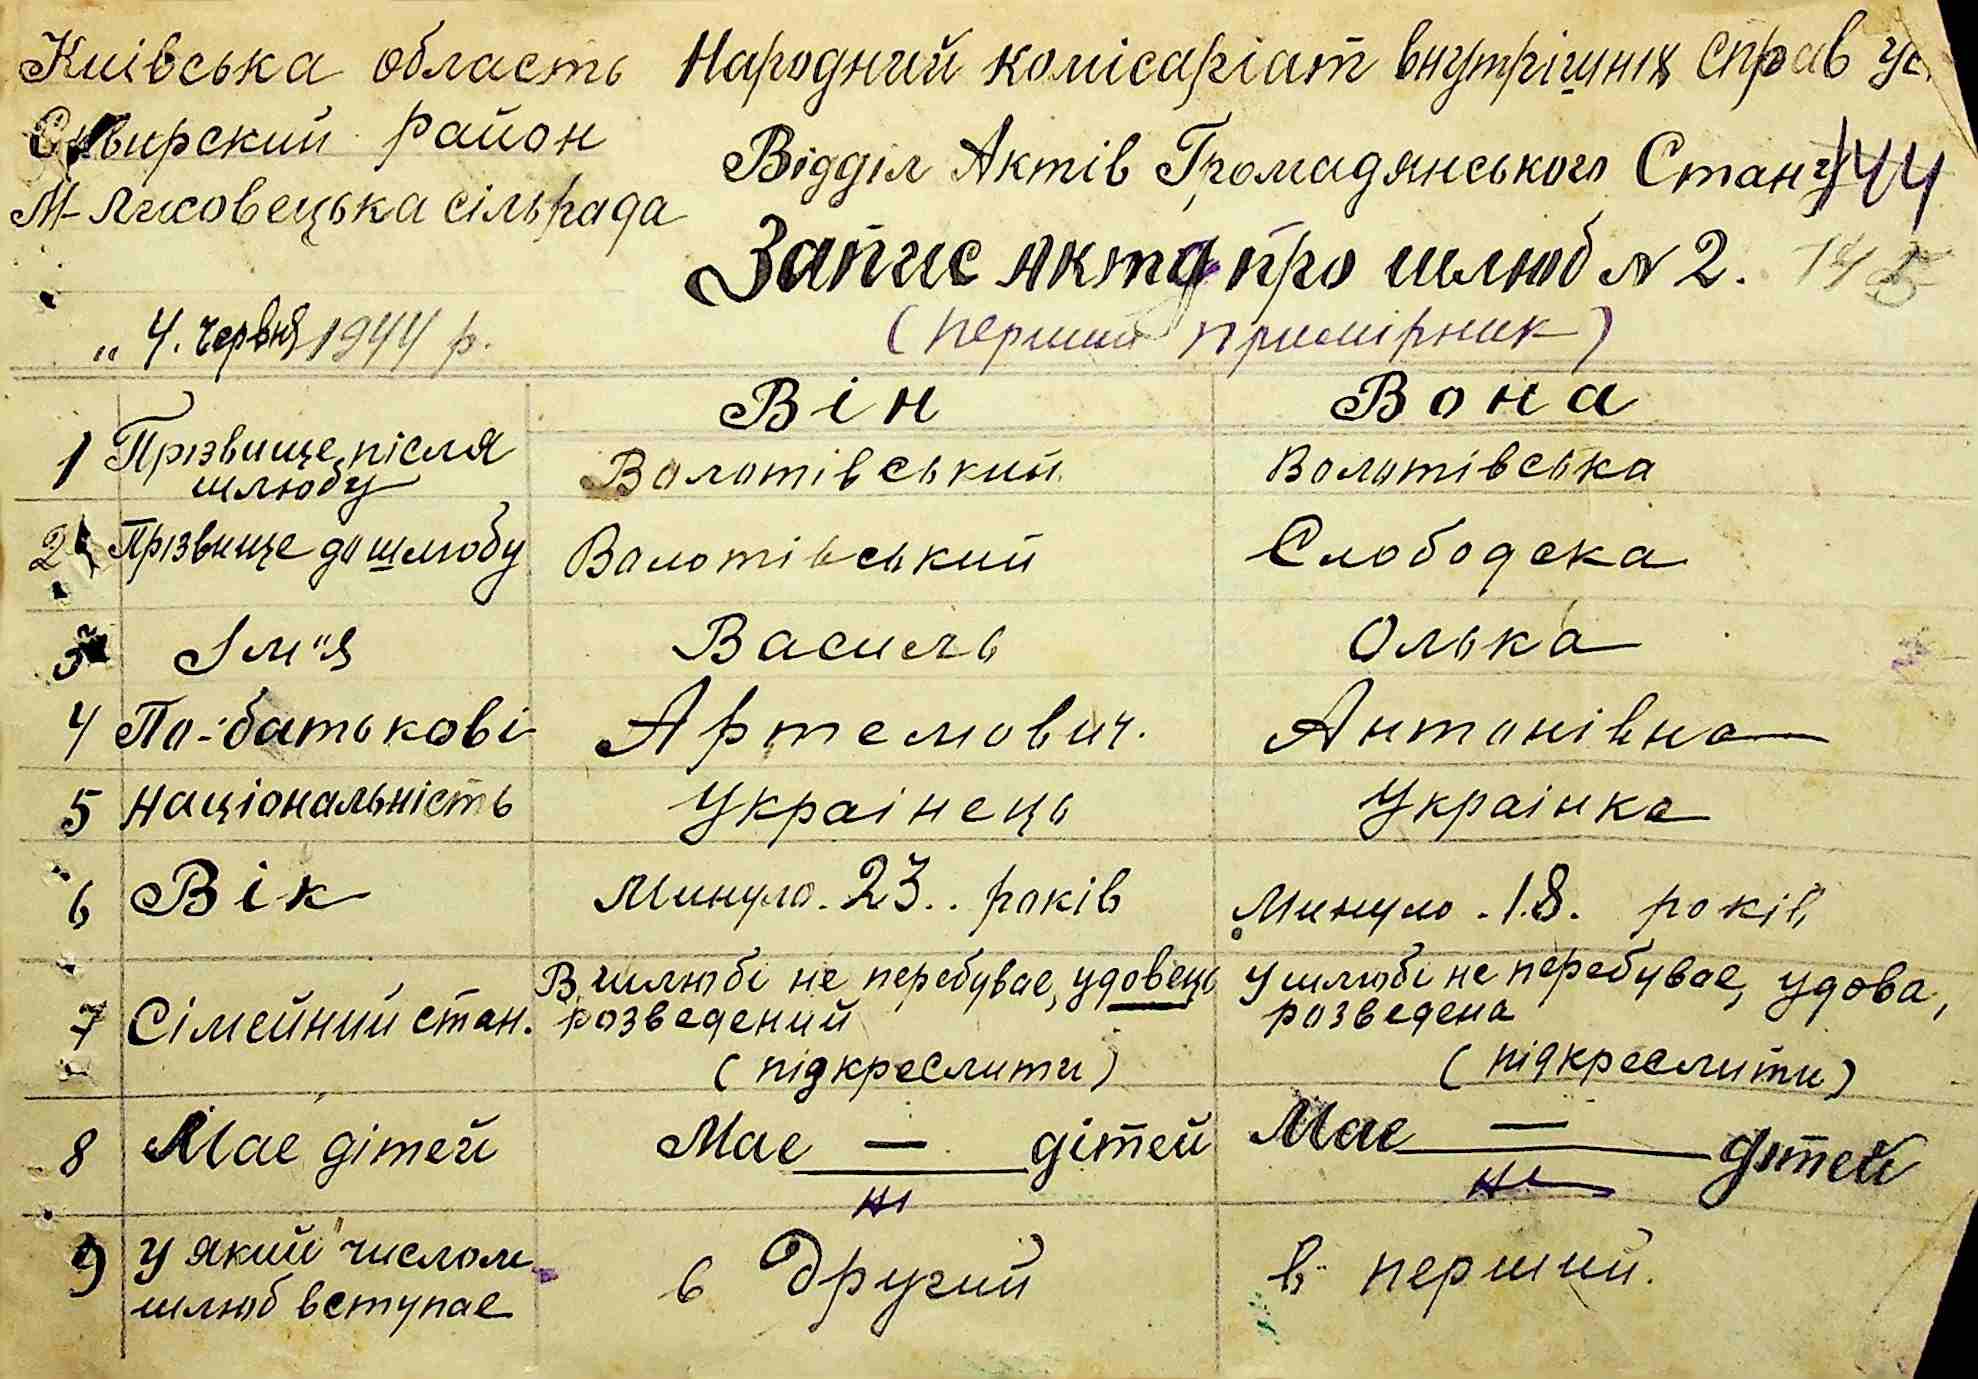 Київська область
Сквирский район
М-Лисовецька сільрада
Народний комісаріат внутрішніх справ
Відділ Актів Громадянського Стану 144
Запис акта про шлюб № 2. 145
(перший примірник)
„ 4. червня 1944 р.
Він Вона
1 Прізвище після шлюбу Волотівський Волотівська
2 Прізвище до шлюбу Волотівський Слободска
3 Ім"я Василь Олька
4 По-батькові Артемович. Антонівна
5 Національність Украінець Украінка
6 Вік Минуло. 23.. років Минуло .18. років
7 Сімейний стан. В шлюбі не перебувае, удовець У шлюбі не перебувае, удова,
розведений розведена
(підкреслити) (підкреслити)
8 Мае дітей Мае — дітей Мае — дітей
не не
9 У який числом в другий в перший.
шлюб вступае